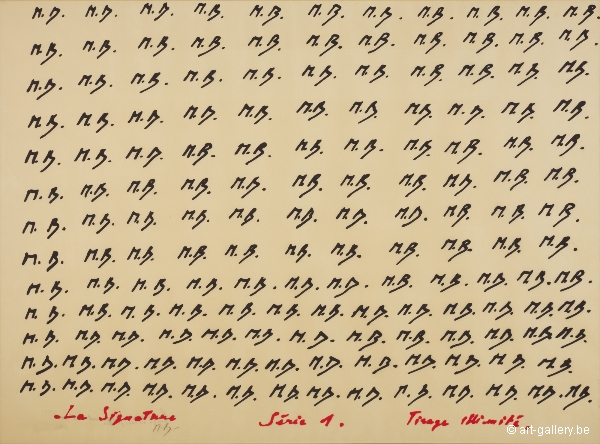 M.B. M.B. M.B. M.B. M.B. M.B. M.B. M.B. M.B. M.B. M.B.
M.B. M.B. M.B. M.B. M.B. M.B. M.B. M.B. M.B. M.B. M.B.
M.B. M.B. M.B. M.B. M.B. M.B. M.B. M.B. M.B. M.B. M.B.
M.B. M.B. M.B. M.B. M.B. M.B. M.B. M.B. M.B. M.B. M.B.
M.B. M.B. M.B. M.B. M.B. M.B. M.B. M.B. M.B. M.B. M.B.
M.B. M.B. M.B. M.B. M.B. M.B. M.B. M.B. M.B. M.B. M.B.
M.B. M.B. M.B. M.B. M.B. M.B. M.B. M.B. M.B. M.B. M.B.
M.B. M.B. M.B. M.B. M.B. M.B. M.B. M.B. M.B. M.B. M.B.
M.B. M.B. M.B. M.B. M.B. M.B. M.B. M.B. M.B. M.B. M.B. M.B.
M.B. M.B. M.B. M.B. M.B. M.B. M.B. M.B. M.B. M.B. M.B. M.B. M.B.
M.B. M.B. M.B. M.B. M.B. M.B. M.B. M.B. M.B. M.B. M.B. M.B. M.B.
M.B. M.B. M.B. M.B. M.B. M.B. M.B. M.B. M.B. M.B. M.B. M.B. M.B.
M.B. M.B. M.B. M.B. M.B. M.B. M.B. M.B. M.B. M.B. M.B. M.B. M.B. M.B.
La Signature Série 1. Tirage illimité.
© art-gallery.be